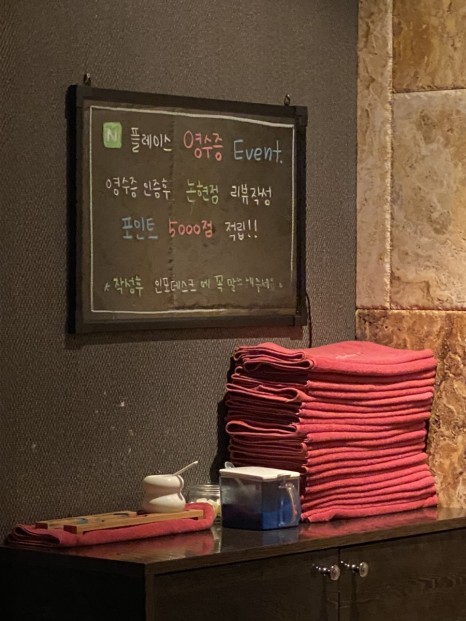 N 플레이스 영수증 Event.
영수증 인증후 논현점 리뷰작성
포인트 5000점 적립!!
작성후 인포데스크에 꼭